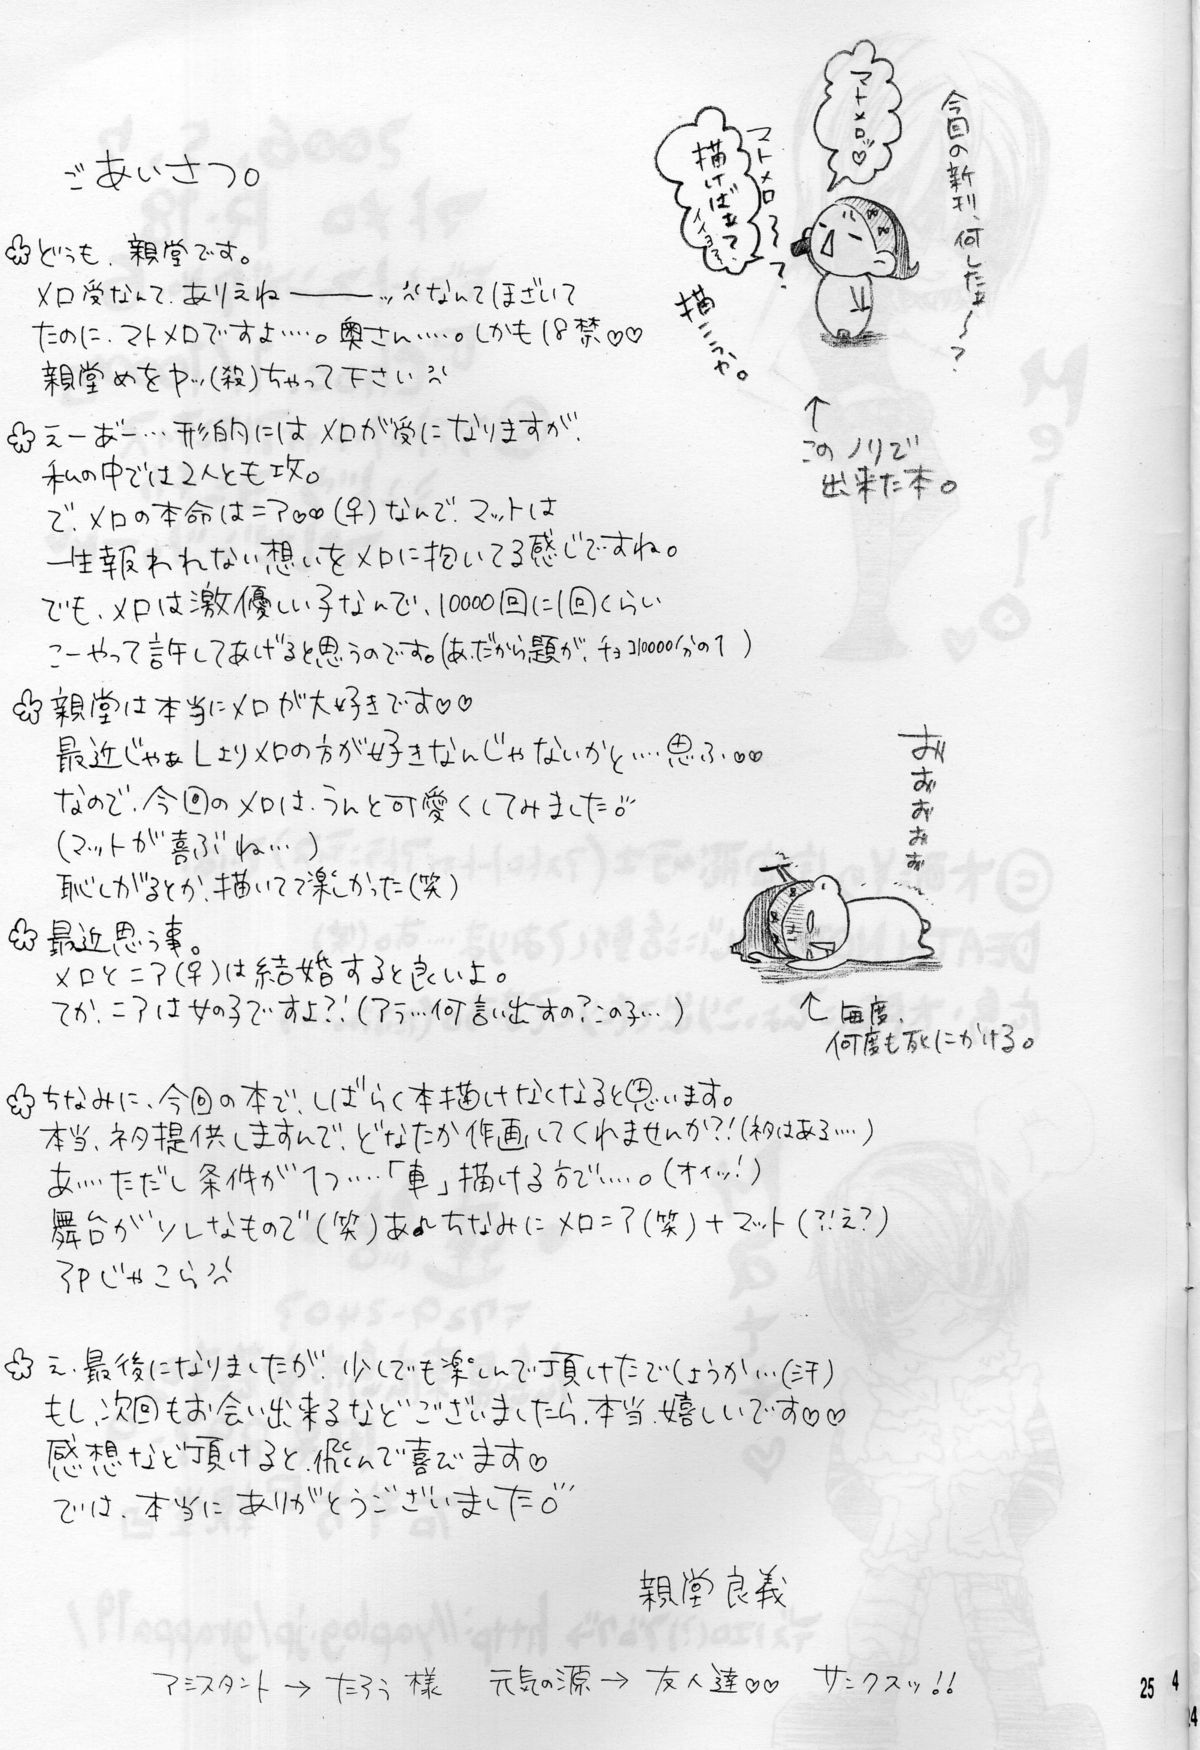 ごあいさつ。
どうも、親堂です。
メロ受なんて、ありえねーーーッなんてほざいて
たのに、マトメロですよ……。奥さん……。しかも18禁♡♡
親堂めをヤッ(殺)ちゃって下さい
えーあー…形的にはメロが受になりますが、
私の中では2人とも攻。
で、メロの本命はニア♡♡(♀)なんで、マットは
一生報われない想いをメロに抱いてる感じですね。
でも、メロは激優しい子なんで、10000回に1回くらい
こーやって許してあげると思うのです。(あ、だから題が、チョコ10000分の1)
親堂は本当にメロが大好きです♡♡
最近じゃぁLよりメロの方が好きなんじゃないかと…思ふ♡♡
なので、今回のメロは、うんと可愛くしてみました
(マットが喜ぶね…)
恥じがるとか、描いてて楽しかった(笑)
最近思う事。
メロとニア(♀)は結婚すると良いよ。
てか、ニアは女の子ですよ?!(アラ…何言い出すの?この子…)
ちなみに、今回の本で、しばらく本描けなくなると思います。
本当、ネタ提供しますんで、どなたか作画してくれませんか?!(ネタはある…)
あ……ただし条件が1つ……「車」描ける方で……。(オイッ!)
舞台がソレなもので(笑)あ、ちなみにメロニア(笑)+マット(?!え?)
3Pじゃこら
え、最後になりましたが、少しでも楽しんで頂けたでしょうか…(汗)
もし、次回もお会い出来るなどございましたら、本当、嬉しいです♡♡
感想など頂けると、飛んで喜びます♡
では、本当にありがとうございました
親堂良義
アシスタント→たろう様 元気の源→友人達♡♡ サンクスッ!!
今回の新刊、何したぁ〜?
マトメロッ♡
マトメロ〜?
描けばぁて、イイヨ
描こうや。
↑このノリで
出来た本。
おぉぉぉぉ
↑毎度、
何度も死にかける。
25
4
24